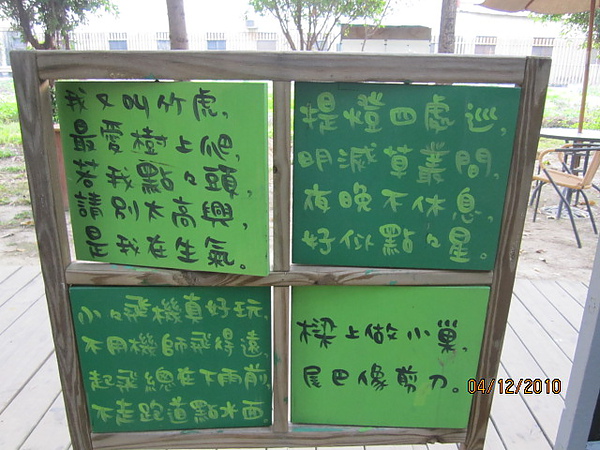 我又叫竹虎,
最愛樹上爬,
若我點々頭,
請別太高興,
是我在生氣。
提燈四處巡,
明滅草叢間,
夜晚不休息,
好似點々星。
小々飛機真好玩,
不用機師飛得遠,
起飛總在下雨前,
不走跑道點水面
樑上做小巢,
尾巴像剪刀。
04/12/2010